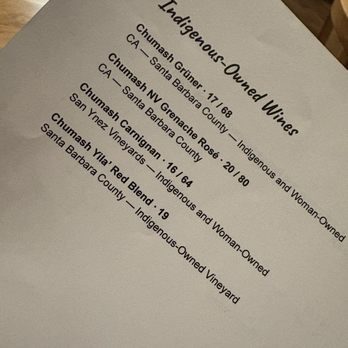 Indigenous-Owned Wines
Chumash Grüner · 17 / 68
CA — Santa Barbara County — Indigenous and Woman-Owned
Chumash NV Grenache Rosé · 20 / 80
CA — Santa Barbara County
Chumash Carnignan · 16 / 64
San Ynez Vineyards — Indigenous and Woman-Owned
Chumash Yila' Red Blend · 19
Santa Barbara County — Indigenous-Owned Vineyard